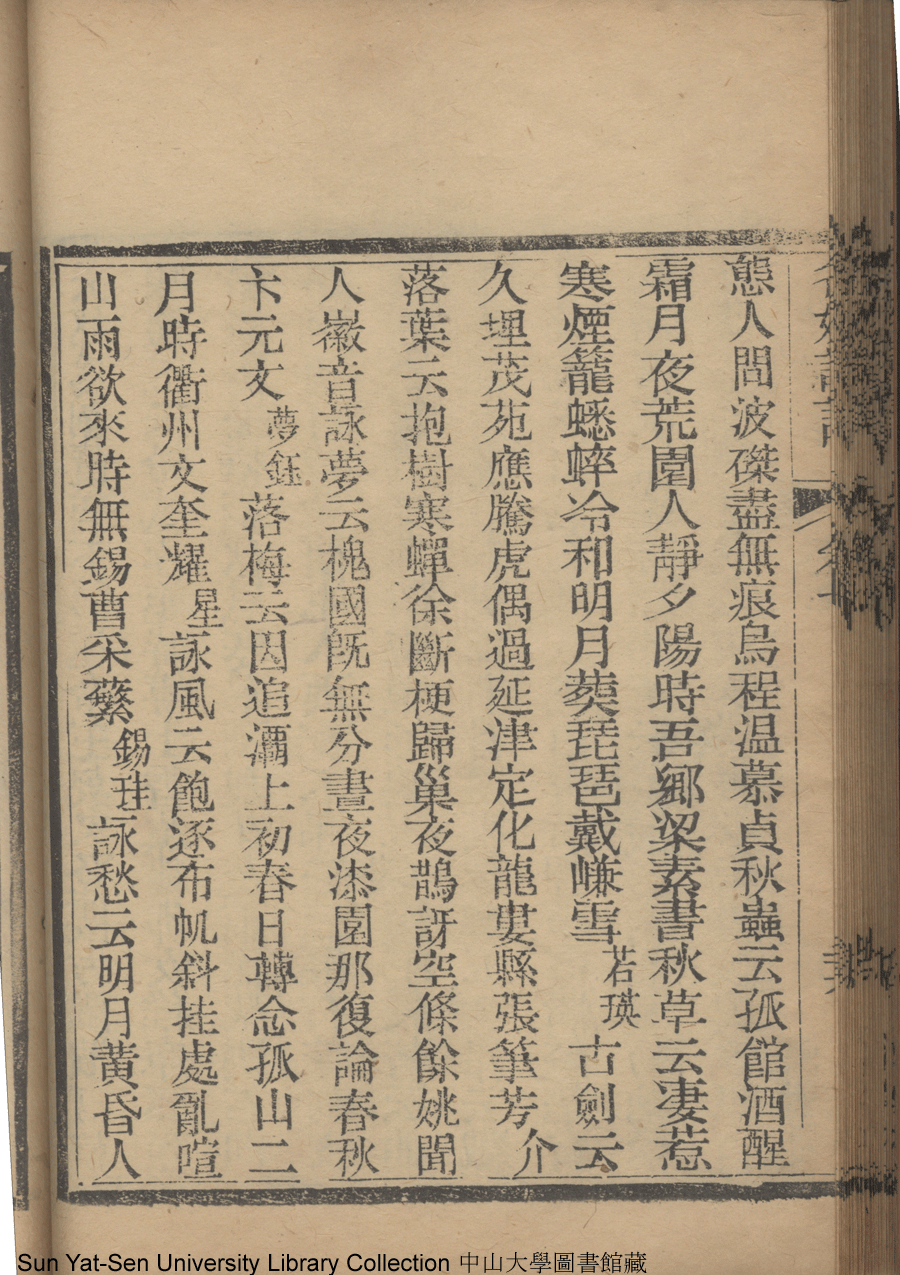 態人間波磔盡無痕烏程温慕貞秋蟲云孤館酒醒
霜月夜荒園人靜夕陽時吾鄉梁素書秋草云淒惹
寒煙籠蟋蟀冷和明月葬琵琶戴嵰雪若瑛古劍云
久埋茂苑應騰虎偶過延津定化龍婁縣張筆芳介
落葉云抱樹寒蟬徐斷梗歸巢夜鵲訝空條餘姚聞
人徽音詠夢云槐國既無分晝夜漆園那復論春秋
卞元文夢鈺落梅云因追灞上初春日轉念孤山二
月時衢州文奎耀星詠風云飽逐布帆斜挂處亂喧
山雨欲來時無錫曹采蘩錫珪詠愁云明月黃昏人
Sun Yat-Sen University Library Collection 中山大學圖書館藏